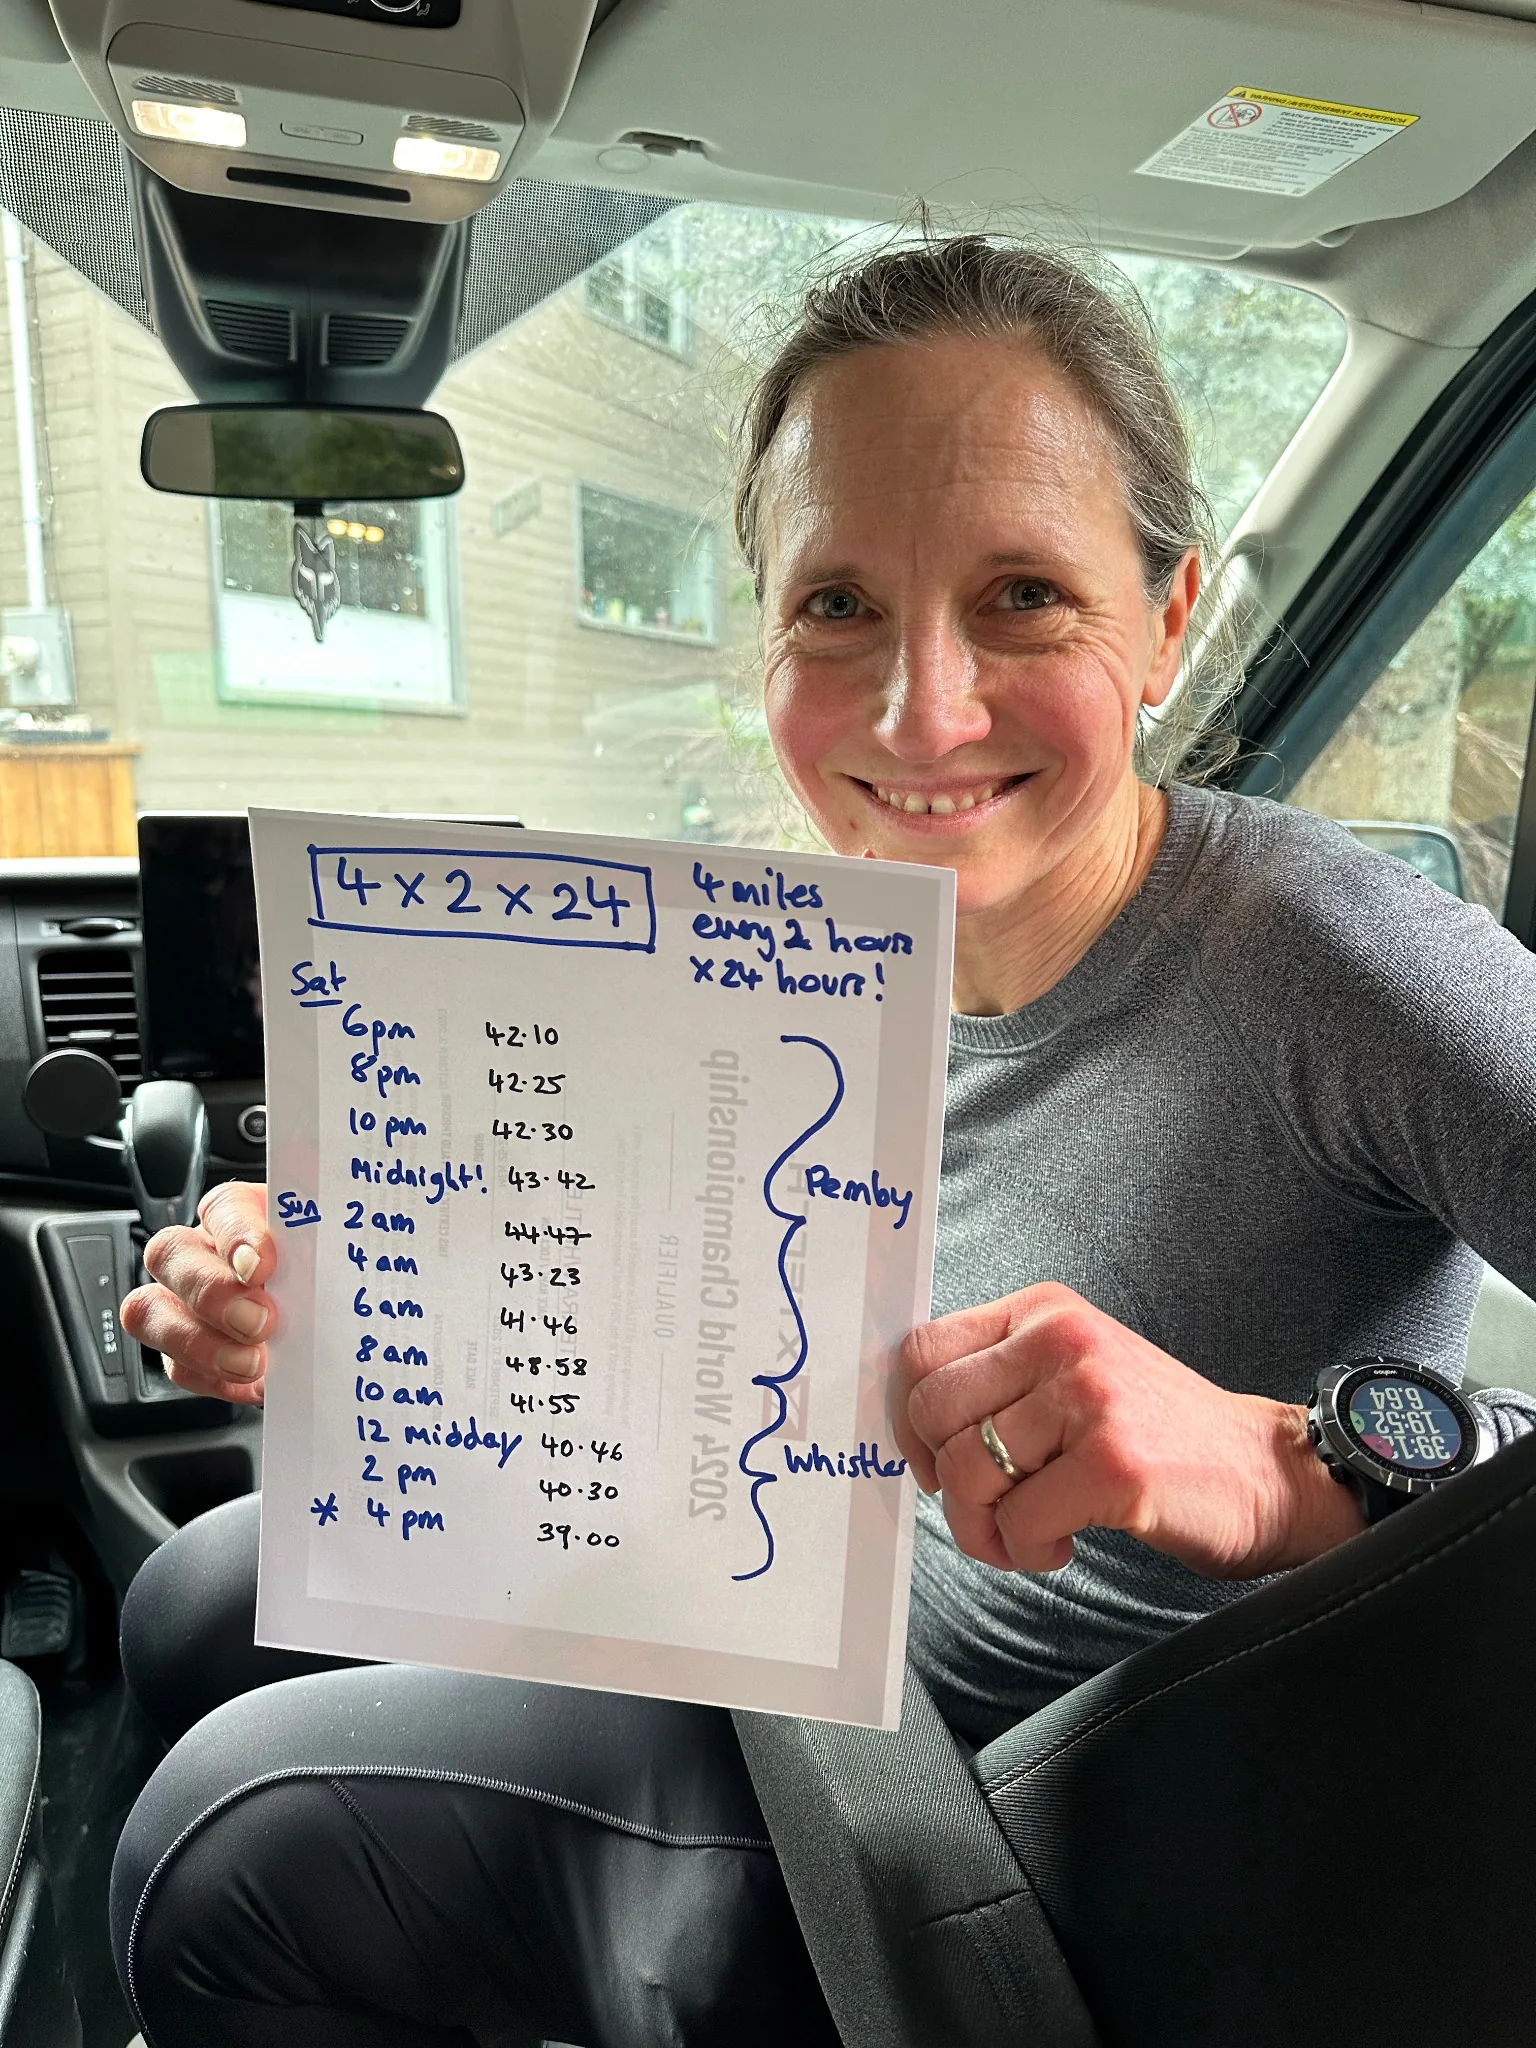 WARNING/AVERTISSEMENT/ADVERTENCIA
4 x 2 x 24
4 miles
every 2 hours
x 24 hours!
Sat
6pm 42.10
8pm 42.25
10 pm 42.30
Midnight! 43.42
Sun 2 am 44.47
4 am 43.23
6 am 41.46
8 am 48.58
10 am 41.55
12 midday 40.46
2 pm 40.30
* 4 pm 39.00
Pemby
Whistler
2024 World Championship
QUALIFIER
wahoo
19:52
6.64